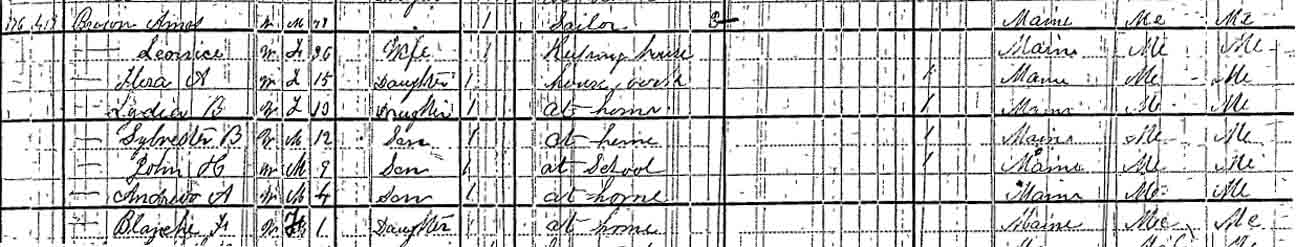 176 417 Brown Amos W M 1 Sailor Maine Me Me
— Leonice W F 36 Wife 1 Keeping house Maine Me Me
— A W F 15 Daughter 1 house work 1 Maine Me Me
— Lydia B W F 13 Daughter 1 at home 1 Maine Me Me
— Sylvester B W M 12 Son 1 at home 1 Maine Me Me
— John H W M 9 Son 1 at School 1 Maine Me Me
— Andrew A W M 4 Son 1 at home Maine Me Me
— Blanche F W F 1 Daughter 1 at home Maine Me Me